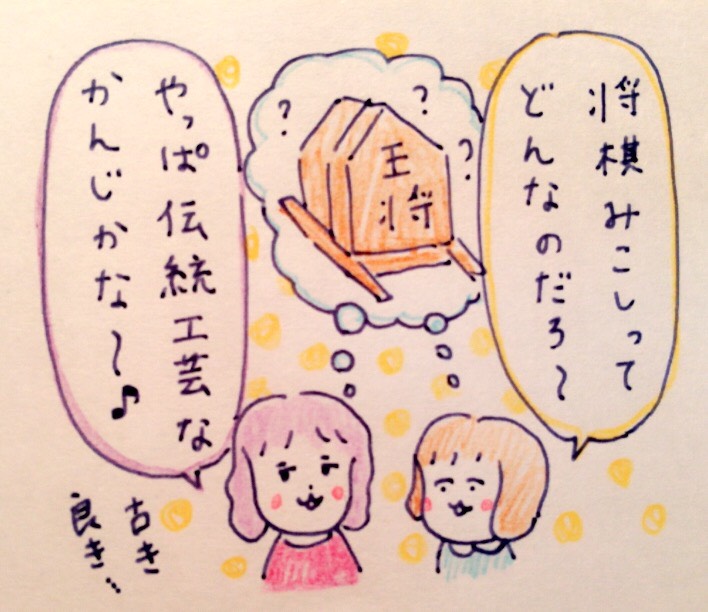 将棋みこしって
どんなのだろ〜
?
?
?
王将
やっぱ伝統工芸な
かんじかな〜♪
古き
良き…